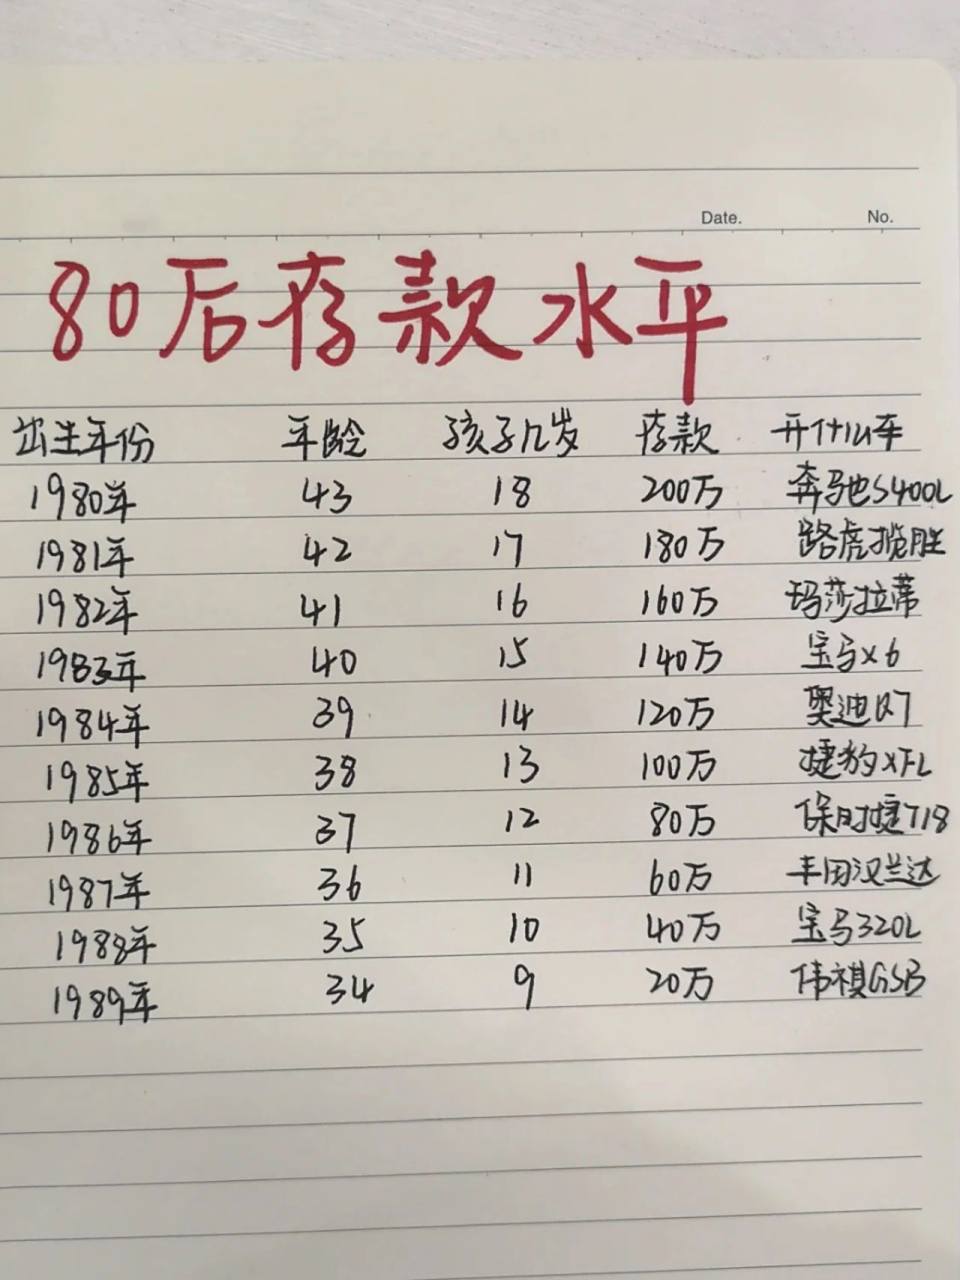 Date. No.
80后存款水平
出生年份 年龄 孩子几岁 存款 开什么车
1980年 43 18 200万 奔驰S400L
1981年 42 17 180万 路虎揽胜
1982年 41 16 160万 玛莎拉蒂
1983年 40 15 140万 宝马X6
1984年 39 14 120万 奥迪Q7
1985年 38 13 100万 捷豹XFL
1986年 37 12 80万 保时捷718
1987年 36 11 60万 丰田汉兰达
1988年 35 10 40万 宝马320L
1989年 34 9 20万 伟祺GS8